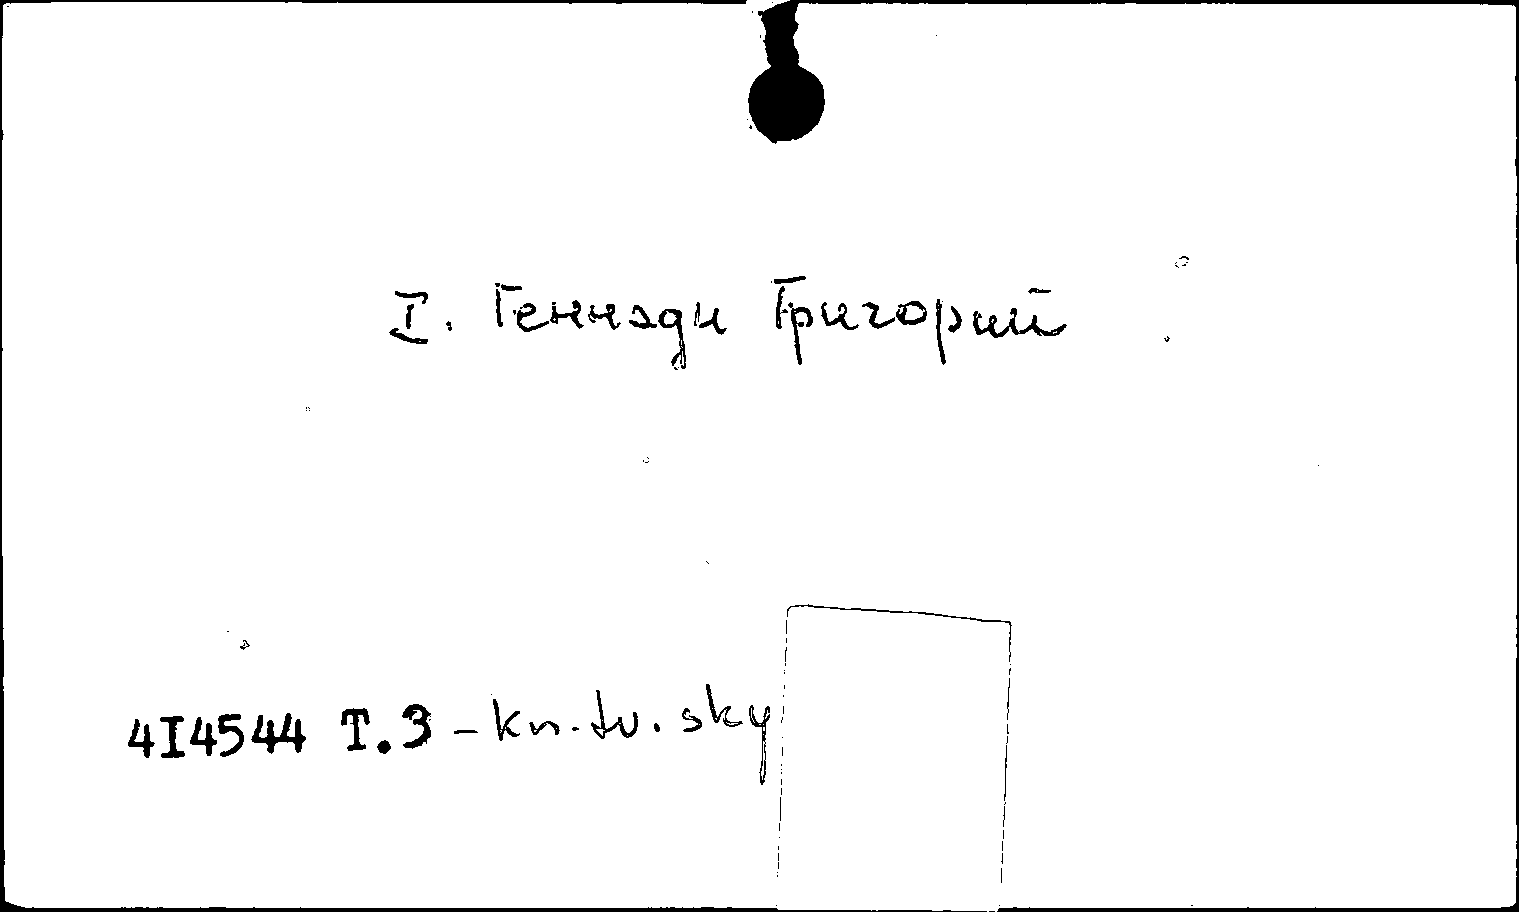 I. Геннади Григорий
4I4544 T.3 - kn. tv. sky